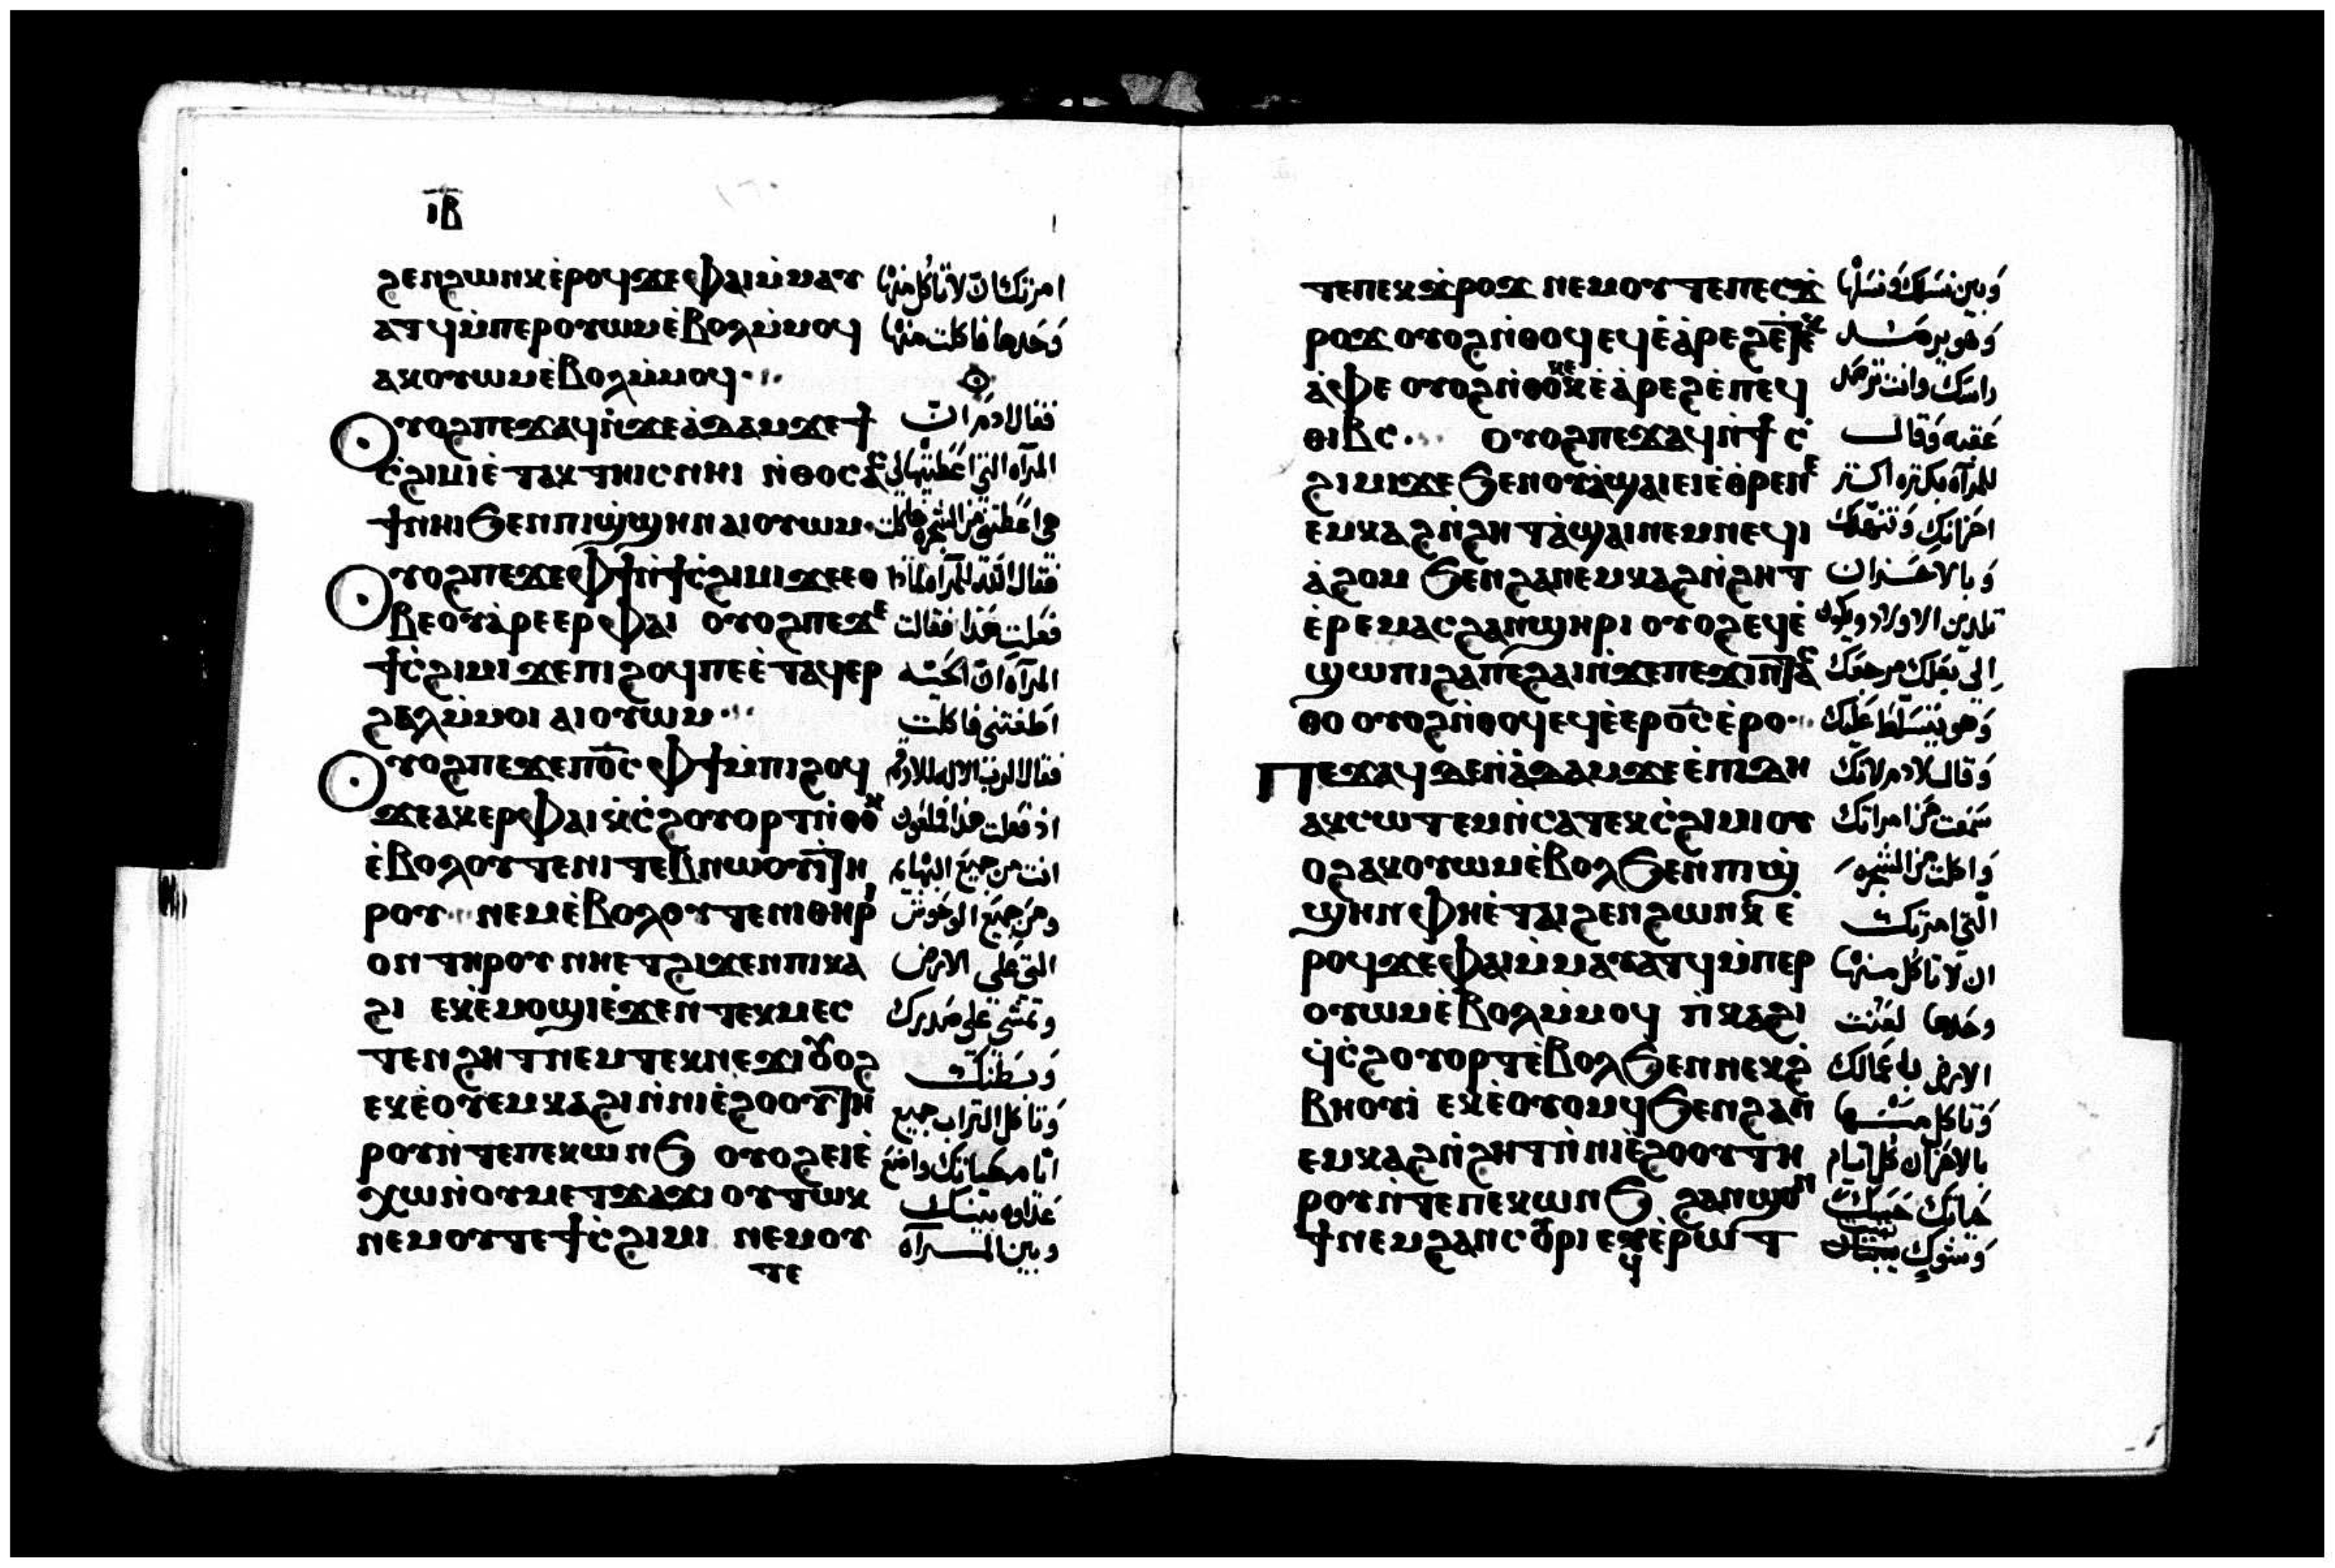 ⲓⲃ
ϩⲉⲛϩⲱⲛⲕ ⲉ̀ⲣⲟϥ ϫⲉ ⲫⲁⲓ ⲙ̀ⲙⲁⲩ امرتك ان لا تاكل منها
ⲁⲧϥ ⲙ̀ⲡⲉⲣⲟⲩⲱⲙ ⲉ̀ⲃⲟⲗ ⲙ̀ⲙⲟϥ وَحدها فاكلت منها
ⲁⲕⲟⲩⲱⲙ ⲉ̀ⲃⲟⲗ ⲙ̀ⲙⲟϥ
ⲟⲩⲟϩ ⲡⲉϫⲁϥ ⲛ̀ϫⲉ ⲁ̀ⲇⲁⲙ ϫⲉ ϯ فقال ادم ان
ⲥ̀ϩⲓⲙⲓ ⲉ̀ⲧⲁⲕⲧⲏⲓⲥ ⲛⲏⲓ ⲛ̀ⲑⲟⲥ ⲁⲥ المرآه التي اعطيتها لي
ϯ ⲛⲏⲓ ϧⲉⲛ ⲡⲓϣ̀ϣⲏⲛ ⲁⲓⲟⲩⲱⲙ هي اعطتني من الشجره فاكلت
ⲟⲩⲟϩ ⲡⲉϫⲉ ⲫϯ ⲛ̀ϯⲥ̀ϩⲓⲙⲓ ϫⲉ ⲉⲑ فقال الله للمرآه لماذا
ⲃⲉ ⲟⲩ ⲁ̀ⲣⲉⲉⲣ ⲫⲁⲓ ⲟⲩⲟϩ ⲡⲉϫⲉ فعلت هذا فقالت
ϯⲥ̀ϩⲓⲙⲓ ϫⲉ ⲡⲓϩⲟϥ ⲡⲉ ⲉ̀ⲧⲁϥⲉⲣ المرآه ان الحيه
ϩⲁⲗ ⲙ̀ⲙⲟⲓ ⲁⲓⲟⲩⲱⲙ اطغتني فاكلت
ⲟⲩⲟϩ ⲡⲉϫⲉ ⲡⲟ̅ⲥ̅ ⲫϯ ⲙ̀ⲡⲓϩⲟϥ فقال الرب الاله
ϫⲉ ⲁⲕⲉⲣ ⲫⲁⲓ ⲕ̀ⲥ̀ϩⲟⲩⲟⲣⲧ ⲛ̀ⲑⲟⲕ اذ فعلت هذا فملعون
ⲉ̀ⲃⲟⲗ ⲟⲩⲧⲉ ⲛⲓⲧⲉⲃⲛⲱⲟⲩⲓ ⲧⲏ انت من جميع البهايم
ⲣⲟⲩ ⲛⲉⲙ ⲉ̀ⲃⲟⲗ ⲟⲩⲧⲉ ⲛⲓⲑⲏⲣⲓ ومن جميع الوحوش
ⲟⲛ ⲧⲏⲣⲟⲩ ⲛⲏⲉⲧϩⲓϫⲉⲛ ⲡⲓⲕⲁ التي على الارض
ϩⲓ ⲉⲕⲉ̀ⲙⲟϣⲓ ⲉ̀ϫⲉⲛ ⲧⲉⲕⲙⲉⲥ وتمشي على صدرك
ⲧⲉⲛϩⲏⲧ ⲛⲉⲙ ⲧⲉⲕⲛⲉϫⲓ ⲟⲩⲟϩ وبطنك
ⲉⲕⲉ̀ⲟⲩⲉⲙ ⲕⲁϩⲓ ⲛ̀ⲛⲓⲉ̀ϩⲟⲟⲩ ⲧⲏ وتاكل التراب جميع
ⲣⲟⲩ ⲛ̀ⲧⲉ ⲡⲉⲕⲱⲛϧ ⲟⲩⲟϩ ⲉⲓⲉ̀ ايام حياتك واضع
ⲭⲱ ⲛ̀ⲟⲩⲙⲉⲧϫⲁϫⲓ ⲟⲩⲧⲱⲕ عداوه بينك
ⲛⲉⲙ ⲟⲩⲧⲉ ϯⲥ̀ϩⲓⲙⲓ ⲛⲉⲙ ⲟⲩ وبين المرآه
ⲧⲉ
ⲧⲉ ⲡⲉⲕϫ̀ⲣⲟϫ ⲛⲉⲙ ⲟⲩⲧⲉ ⲡⲉⲥϫ̀ وبين نسلك ونسلها
ⲣⲟϫ ⲟⲩⲟϩ ⲛ̀ⲑⲟϥ ⲉϥⲉ̀ⲁ̀ⲣⲉϩ ⲉ̀ⲧⲉⲕ وهو يرصد
ⲁ̀ⲫⲉ ⲟⲩⲟϩ ⲛ̀ⲑⲟⲕ ⲉⲕⲉ̀ⲁ̀ⲣⲉϩ ⲉ̀ⲡⲉϥ راسك وانت ترصد
ⲑⲓⲃⲥ ⲟⲩⲟϩ ⲡⲉϫⲁϥ ⲛ̀ϯⲥ̀ عقبه وقال
ϩⲓⲙⲓ ϫⲉ ϧⲉⲛ ⲟⲩⲁ̀ϣⲁⲓ ⲉⲓⲉ̀ⲑ̀ⲣⲉ ⲛⲉ للمرآه بكثره اكثر
ⲉⲙⲕⲁϩ ⲛ̀ϩⲏⲧ ⲁ̀ϣⲁⲓ ⲛⲉⲙ ⲛⲉϥⲓ احزانك وتنهدك
ⲁ̀ϩⲟⲙ ϧⲉⲛ ϩⲁⲛⲉⲙⲕⲁϩ ⲛ̀ϩⲏⲧ وبالاحزان
ⲉ̀ⲣⲉⲙⲁⲥ ϩⲁⲛϣⲏⲣⲓ ⲟⲩⲟϩ ⲉϥⲉ̀ تلدين الاولاد ويكون
ϣⲱⲡⲓ ϩⲁ ⲡⲉϩⲁⲓ ⲛ̀ϫⲉ ⲡⲉϫⲓⲛⲧⲁⲥ الى بعلك مرجعك
ⲑⲟ ⲟⲩⲟϩ ⲛ̀ⲑⲟϥ ⲉϥⲉ̀ⲉⲣⲟ̅ⲥ̅ ⲉ̀ⲣⲟ وهو يتسلط عليك
ⲡⲉϫⲁϥ ⲇⲉ ⲛ̀ⲁ̀ⲇⲁⲙ ϫⲉ ⲉ̀ⲡⲓⲇⲏ وقال لادم لانك
ⲁⲕⲥⲱⲧⲉⲙ ⲛ̀ⲥⲁ ⲧⲉⲕⲥ̀ϩⲓⲙⲓ ⲟⲩ سمعت من امراتك
ⲟϩ ⲁⲕⲟⲩⲱⲙ ⲉ̀ⲃⲟⲗ ϧⲉⲛ ⲡⲓϣ̀ واكلت من الشجره
ϣⲏⲛ ⲫⲏⲉ̀ⲧⲁⲓϩⲉⲛϩⲱⲛⲕ ⲉ̀ التي امرتك
ⲣⲟϥ ϫⲉ ⲫⲁⲓ ⲙ̀ⲙⲁⲩⲁⲧϥ ⲙ̀ⲡⲉⲣ ان لا تاكل منها
ⲟⲩⲱⲙ ⲉ̀ⲃⲟⲗ ⲙ̀ⲙⲟϥ ⲡ̀ⲕⲁϩⲓ وحدها لعنت
ϥ̀ⲥ̀ϩⲟⲩⲟⲣⲧ ⲉ̀ⲃⲟⲗ ϧⲉⲛ ⲛⲉⲕϩ̀ الارض باعمالك
ⲃⲏⲟⲩⲓ̀ ⲉⲕⲉ̀ⲟⲩⲟⲙϥ ϧⲉⲛ ϩⲁⲛ وتاكل منها
ⲉⲙⲕⲁϩ ⲛ̀ϩⲏⲧ ⲛ̀ⲛⲓⲉ̀ϩⲟⲟⲩ ⲧⲏ بالاحزان كل ايام
ⲣⲟⲩ ⲛ̀ⲧⲉ ⲡⲉⲕⲱⲛϧ ϩⲁⲛⲥⲟⲩ حياتك
ϯ ⲛⲉⲙ ϩⲁⲛⲥⲟⲩⲣⲓ ⲉϥⲉ̀ⲣⲱⲧ وشوك